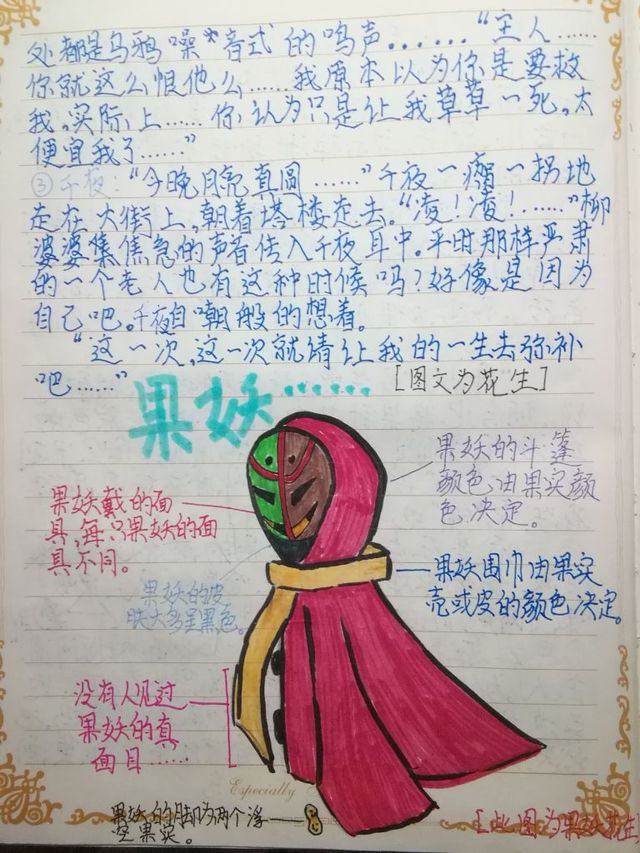 处都是乌鸦噪*音式的鸣声……“主人……
你就这么恨他么……我原本以为你是要救
我，实际上……你认为只是让我草草一死，太
便宜我了……”
③千夜：“今晚月亮真圆……”千夜一瘸一拐地
走在大街上，朝着塔楼走去。“凌！凌！……”柳
婆婆焦急的声音传入千夜耳中。平时那样严肃
的一个老人也有这种时候吗？好像是因为
自己吧。千夜自嘲般的想着。
“这一次，这一次就请让我的一生去弥补
吧……”
[图文为花生]
果妖……
果妖的斗篷
颜色由果实颜
色决定。
果妖戴的面
具，每只果妖的面
具不同。
果妖围巾由果实
壳或皮的颜色决定。
果妖的皮
肤大多呈黑色。
没有人见过
果妖的真
面目……
Especially
果妖的脚为两个浮
空果实。
[此图为果妖花生]